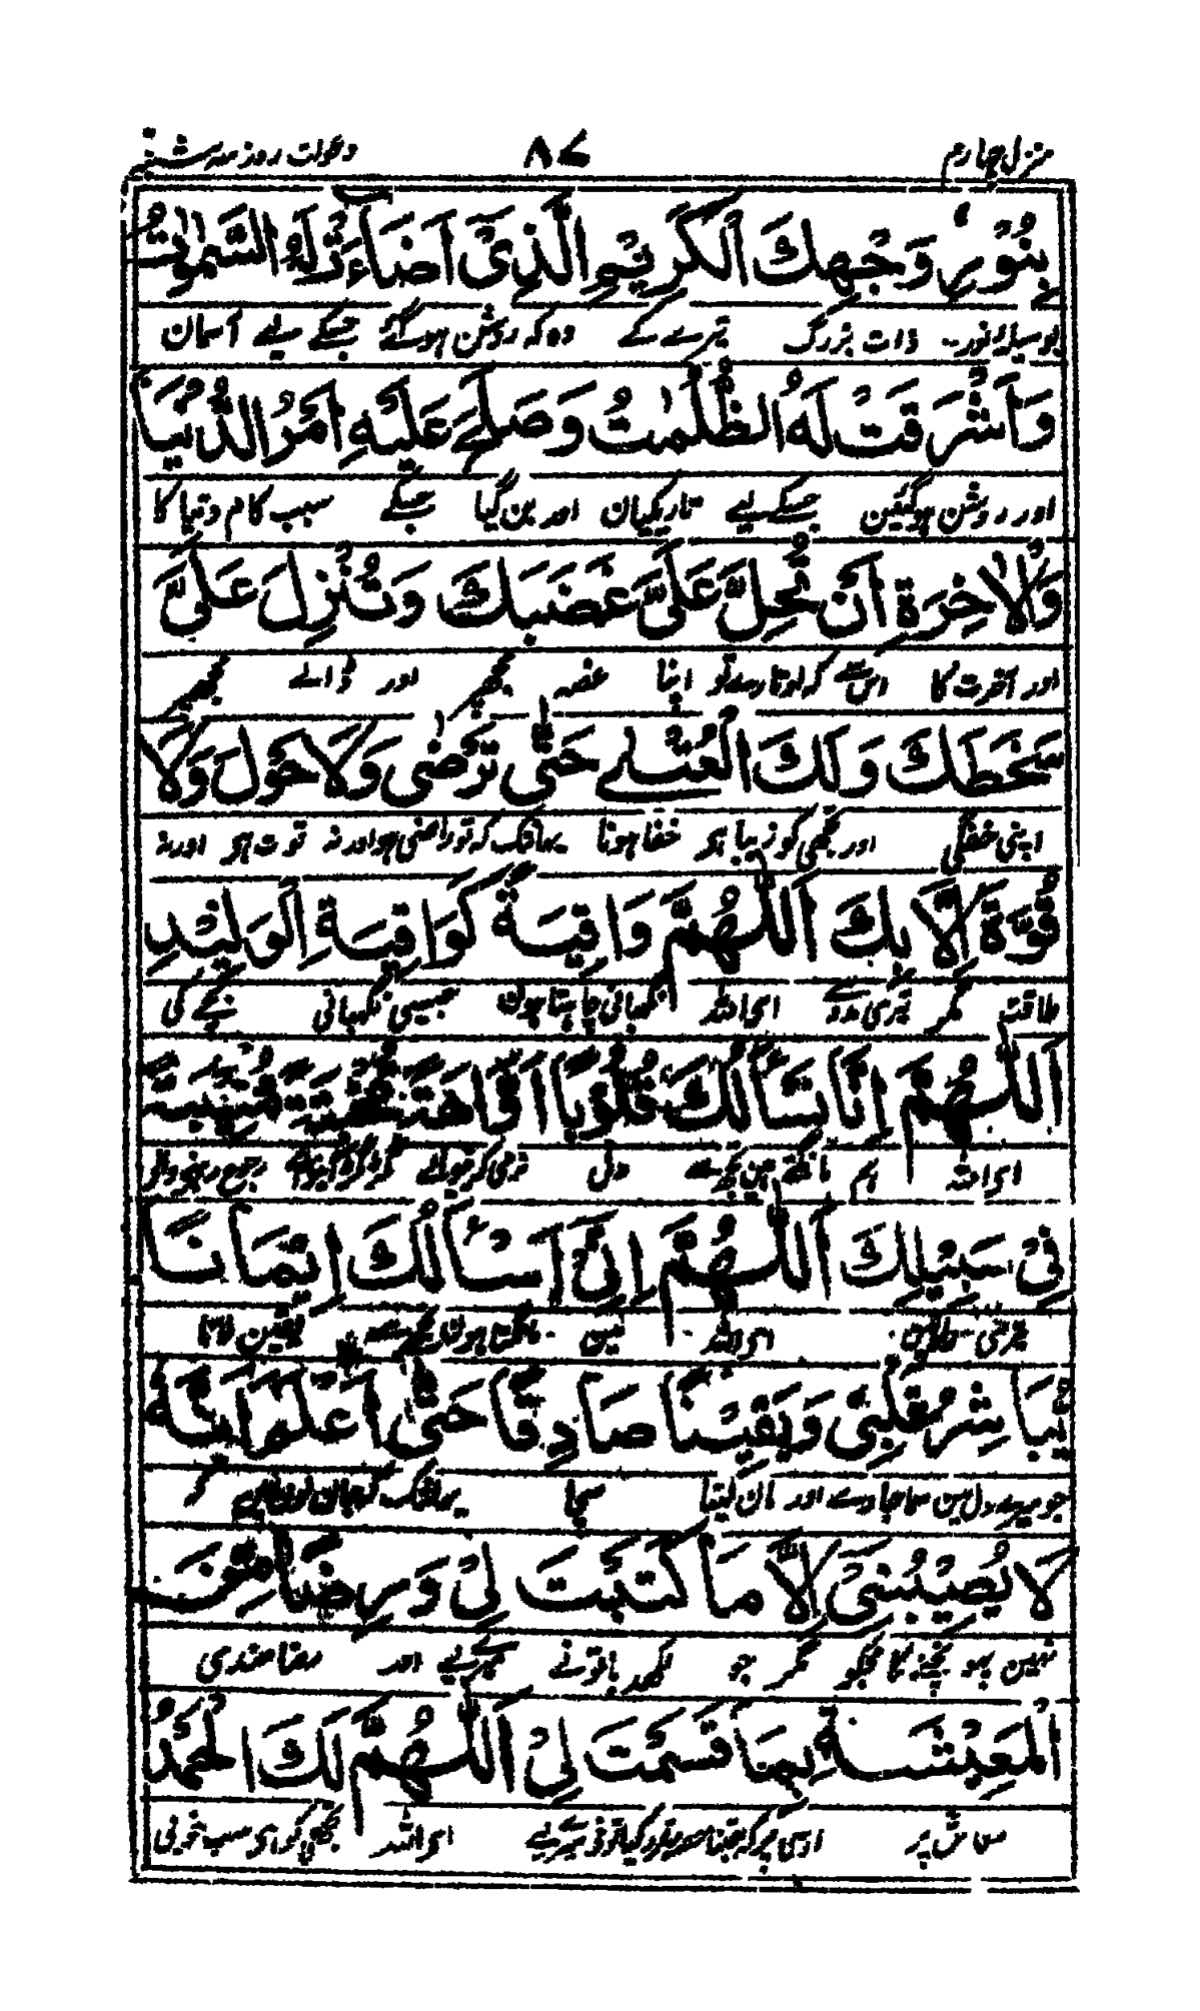 منزل چهارم ٨٤ دعوات روز سه شنبه
بِنُوْرِ وَجْهِكَ الْكَرِيْمِ الَّذِىْ اَضَآءَتْ لَهُ السَّمٰوٰتُ
بوسیلہ نور ذات بزرگ تیرے کے وہ کہ روشن ہوگئے جسکے لیے آسمان
وَاَشْرَقَتْ لَهُ الظُّلُمٰتُ وَصَلُحَ عَلَيْهِ اَمْرُ الدُّنْيَا
اور روشن ہوگئین جسکے لیے تاریکیان اور بن گیا جسکے سبب کام دنیا کا
وَالْاٰخِرَةِ اَنْ تُحِلَّ عَلَىَّ غَضَبَكَ وَتُنْزِلَ عَلَىَّ
اور آخرت کا اس سے کہ اوتارے تو اپنا غضہ مجھپر اور ڈالے مجھپر
سَخَطَكَ وَلَكَ الْعُتْبٰى حَتّٰى تَرْضٰى وَلَا حَوْلَ وَلَا
اپنی خفگی اور تجھی کو زیبا ہو خفا ہونا یہانتک کہ تو راضی ہو اور نہ قوت ہو اور نہ
قُوَّةَ اِلَّا بِكَ اَللّٰهُمَّ وَاقِيَةً كَوَاقِيَةِ الْوَلِيْدِ
طاقت مگر تیری مدد سے اى الله نگہبانی چاہتا ہون جیسی نگہبانی بچے کی
اَللّٰهُمَّ اِنَّا نَسْاَلُكَ قُلُوْبًا اَوَّاهَةً مُخْبِتَةً مُنِيْبَةً
اى الله ہم مانگتے ہین تجھسے دل
فِىْ سَبِيْلِكَ اَللّٰهُمَّ اِنِّىْ اَسْاَلُكَ اِيْمَانًا
تیری راہ مین اى الله مین مانگتا ہون تجھسے
يُّبَاشِرُ قَلْبِىْ وَيَقِيْنًا صَادِقًا حَتّٰى اَعْلَمَ اَنَّهُ
جو میرے دل مین سما جاوے اور سچا یہانتک کہ جان لون
لَا يُصِيْبُنِىْ اِلَّا مَا كَتَبْتَ لِىْ وَرِضًا مِّنَ
نہین پہونچنے کا مجکو مگر جو لکھدیا تونے میرے لیے اور رضامندی
الْمَعِيْشَةِ بِمَا قَسَمْتَ لِىْ اَللّٰهُمَّ لَكَ الْحَمْدُ
معاش پر اوسی پر کہ جتنا تونے میرے لیے اى الله تجھی کو ہی سب خوبی